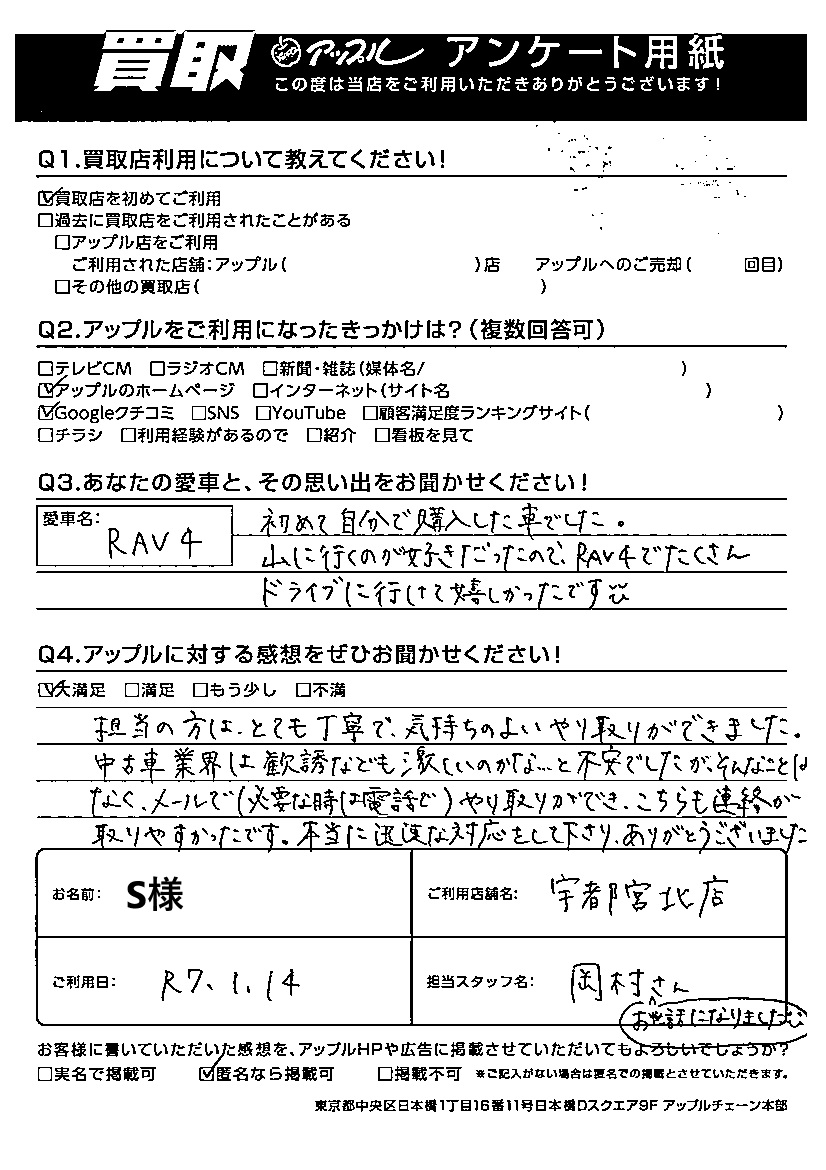 買取 アップル アンケート用紙
この度は当店をご利用いただきありがとうございます！
Q1.買取店利用について教えてください！
☑買取店を初めてご利用
□過去に買取店をご利用されたことがある
□アップル店をご利用
ご利用された店舗：アップル（　）店　アップルへのご売却（　回目）
□その他の買取店（　）
Q2.アップルをご利用になったきっかけは？（複数回答可）
□テレビCM　□ラジオCM　□新聞・雑誌（媒体名/　）
☑アップルのホームページ　□インターネット（サイト名　）
☑Googleクチコミ　□SNS　□YouTube　□顧客満足度ランキングサイト（　）
□チラシ　□利用経験があるので　□紹介　□看板を見て
Q3.あなたの愛車と、その思い出をお聞かせください！
愛車名： RAV4
初めて自分で購入した車でした。
山に行くのが好きだったので、RAV4でたくさん
ドライブに行けて嬉しかったです
Q4.アップルに対する感想をぜひお聞かせください！
☑大満足　□満足　□もう少し　□不満
担当の方は、とても丁寧で、気持ちのよいやり取りができました。
中古車業界は歓誘なども激しいのかな…と不安でしたが、そんなことは
なく、メールで（必要な時は電話で）やり取りができ、こちらも連絡が
取りやすかったです。本当に迅速な対応をして下さり、ありがとうございました
お名前： S様　ご利用店舗名： 宇都宮北店
ご利用日： R7.1.14　担当スタッフ名： 岡村さん
お世話になりました
お客様に書いていただいた感想を、アップルHPや広告に掲載させていただいてもよろしいでしょうか？
□実名で掲載可　☑匿名なら掲載可　□掲載不可　※ご記入がない場合は匿名での掲載とさせていただきます。
東京都中央区日本橋1丁目16番11号日本橋Dスクエア9F アップルチェーン本部